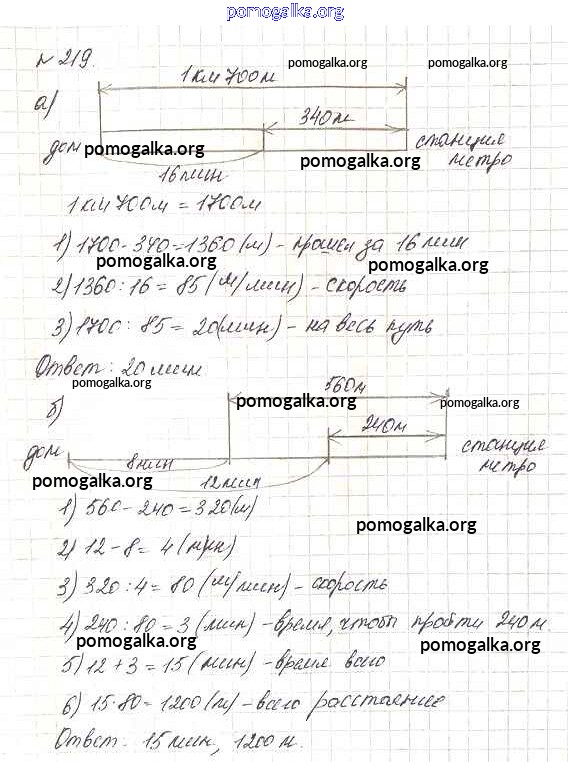 pomogalka.org
№ 219.
1 км 700 м
pomogalka.org pomogalka.org
а)
340 м
дом pomogalka.org станция метро
pomogalka.org
16 мин
1 км 700 м = 1700 м
1) 1700 - 340 = 1360 (м) - прошел за 16 мин
pomogalka.org pomogalka.org
2) 1360 : 16 = 85 (м/мин) - скорость
3) 1700 : 85 = 20 (мин) - на весь путь
Ответ: 20 мин
pomogalka.org
560 м
б) pomogalka.org pomogalka.org
240 м
дом станция метро
8 мин
pomogalka.org 12 мин
1) 560 - 240 = 320 (м)
pomogalka.org
2) 12 - 8 = 4 (мин)
3) 320 : 4 = 80 (м/мин) - скорость
4) 240 : 80 = 3 (мин) - время, чтобы пройти 240 м.
pomogalka.org pomogalka.org
5) 12 + 3 = 15 (мин) - время всего
6) 15·80 = 1200 (м) - всего расстояние
Ответ: 15 мин, 1200 м.